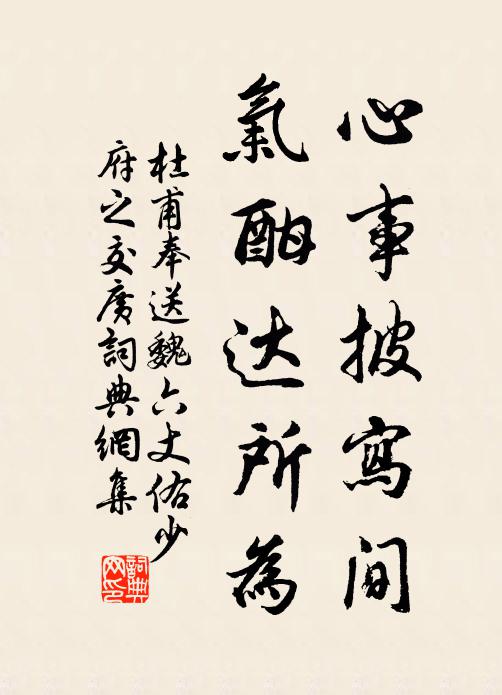 心事披寫間
氣酣达所為
杜甫奉送魏六丈佑少
府之交廣詞典網集
詞典网印